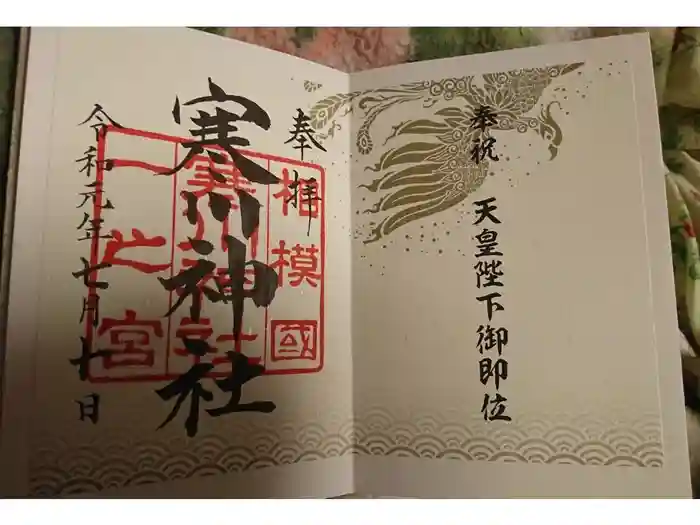 奉祝 天皇陛下御即位
奉拝
相模國
寒川神社
寒川神社
一之宮
令和元年七月十日